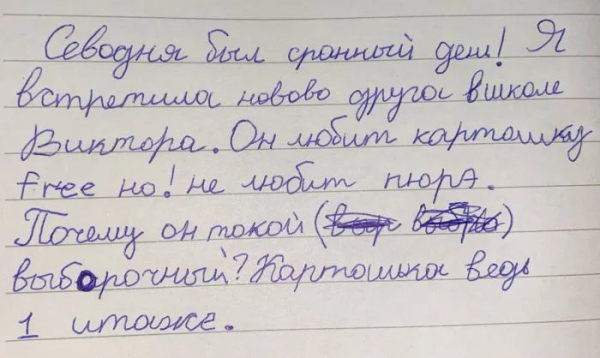 Севодня был сранный ден! Я
встретила новово друга вшколе
Виктора. Он любит картошку
free но! не любит пюрэ.
Почему он такой (
)
выборочный? Картошька ведь
1 итаже.